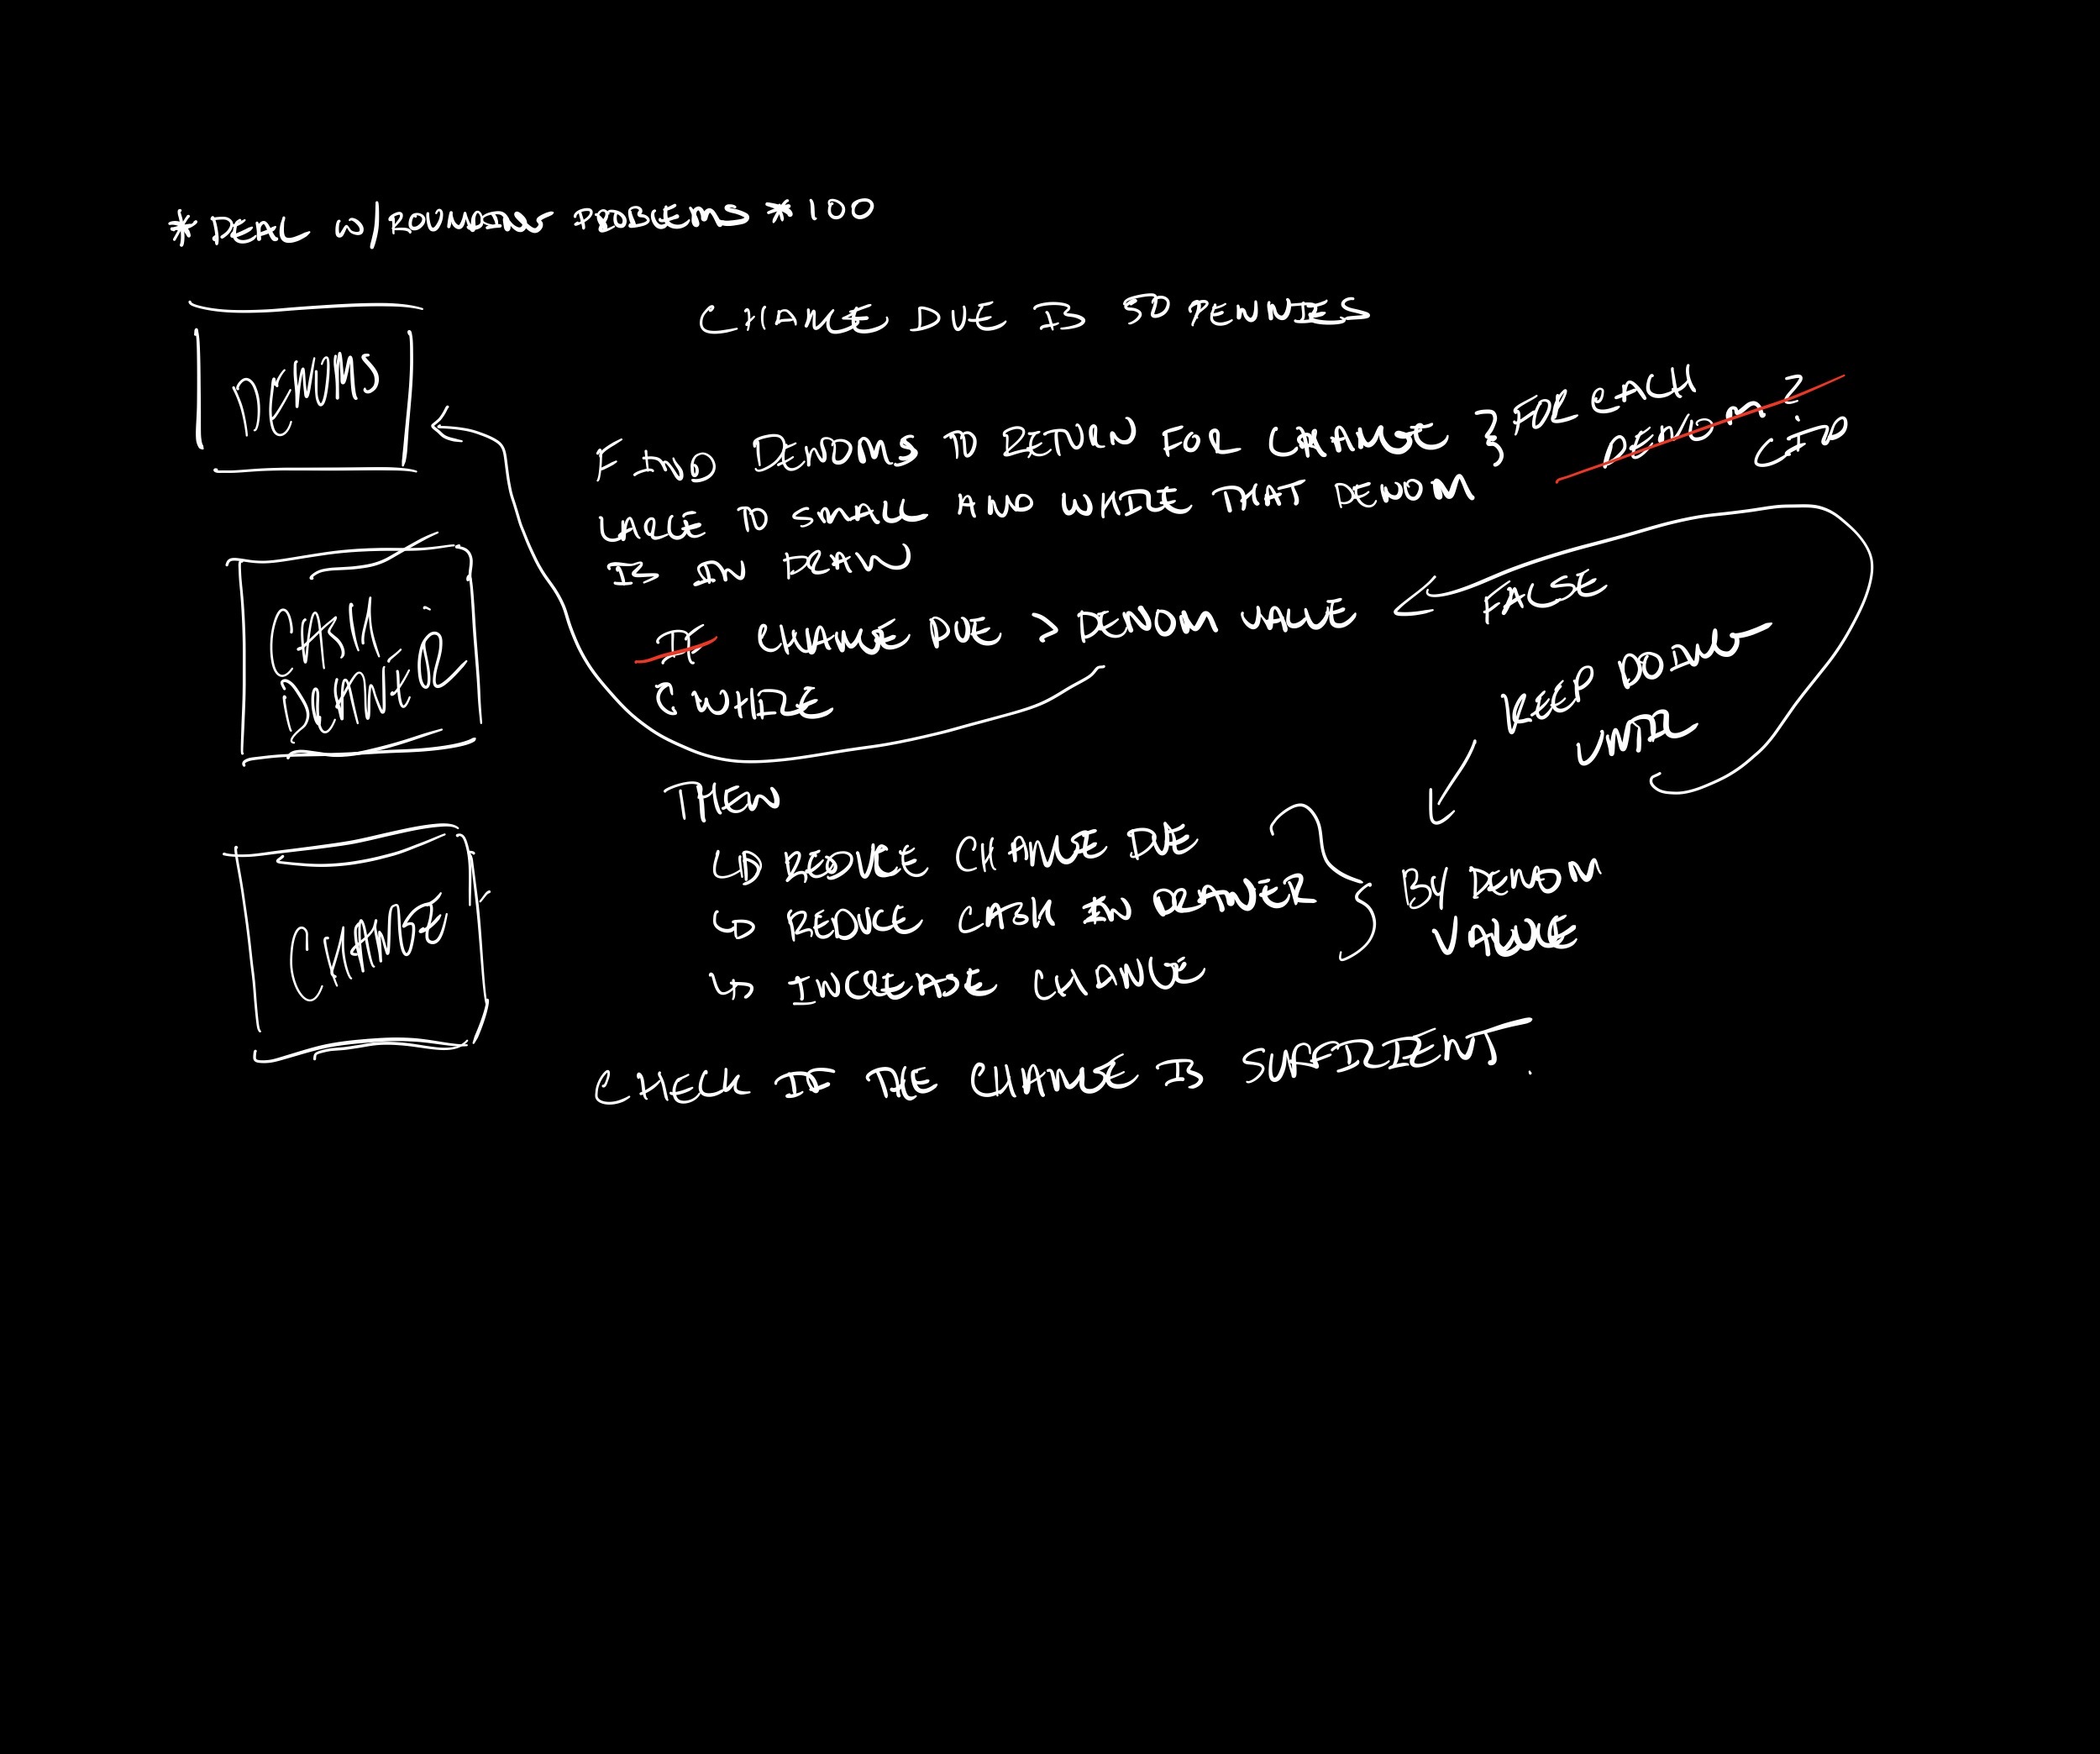 * DEAL W/ROUNDING PROBLEMS * 100
CHANGE DUE IS 50 PENNIES
DENOMS
FIND DENOMS TO RETURN FOR CHANGE } FOR EACH
DENOM?
CID
LARGE TO SMALL AND WHILE THAT DENOM
IS IN DRAW
IF CHANGE DUE > DENOM VALUE
FALSE
WHILE
KEEP DOING
UNTIL
CASH
CHANGE
THEN
REDUCE CHANGE DUE
REDUCE CASH IN DRAWER
INCREASE CHANGE
BY DENOM
VALUE
CHECK IF THE CHANGE IS SUFFICIENT.